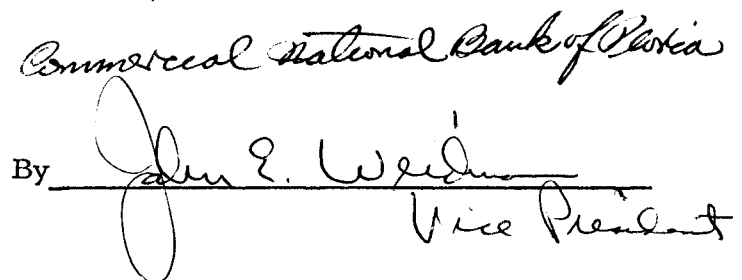 Commercial National Bank of Peoria
By John E. Weidman
Vice President